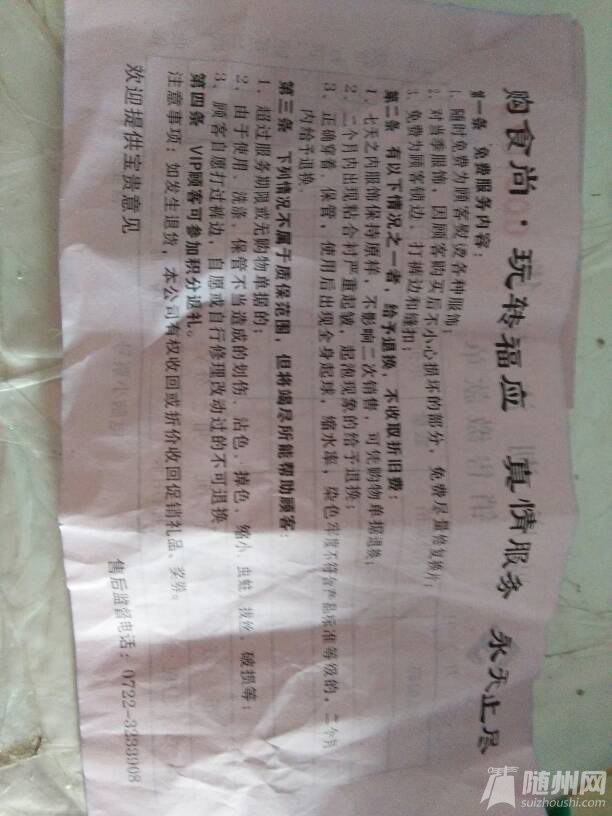 购食尚·玩转福应 真情服务 永无止尽
第一条 免费服务内容：
1. 随时免费为顾客熨烫各种服饰；
2. 对当季服饰，因顾客购买后不小心损坏的部分，免费尽量修复换片；
3. 免费为顾客锁边、打裤边和缝扣；
第二条 有以下情况之一者，给予退换，不收取折旧费：
1. 七天之内服饰保持原样，不影响二次销售，可凭购物单据退换；
2. 二个月内出现粘合衬严重起皱、起泡现象的给予退换；
3、正确穿着、保管，使用后出现全身起球，缩水率，染色牢度不符合产品标准等级的，二个月
内给予退换。
第三条 下列情况不属于质保范围，但将竭尽所能帮助顾客：
1、超过服务期限或无购物单据的；
2、由于使用、洗涤、保管不当造成的划伤、沾色、掉色、缩小、虫蛀、拔丝、破损等；
3、顾客自愿打过裤边，自愿或自行修理改动过的不可退换
第四条 VIP顾客可参加积分返礼。
注意事项：如发生退货，本公司有权收回或折价收回促销礼品、奖券。
欢迎提供宝贵意见 售后监督电话：0722-3233908
随州网
suizhoushi.com